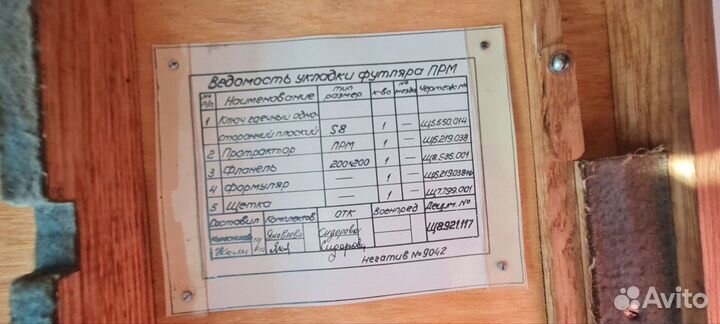 Ведомость укладки футляра ПРМ
№ п/п Наименование тип размер к-во № гнезда Чертеж №
1 Ключ гаечный одно-
сторонний плоский S8 1 — Щ5.550.014
2 Протрактор ПРМ 1 — Щ6.219.038
3 Фланель 200×200 1 — Щ8.535.001
4 Формуляр — 1 —
5 Щетка — 1 — Щ7.799.001
Составил Комплектов. ОТК Военпред Децим. №
Яковлева Сидорова Щ8921117
Сидорова
Негатив № 9042
Avito